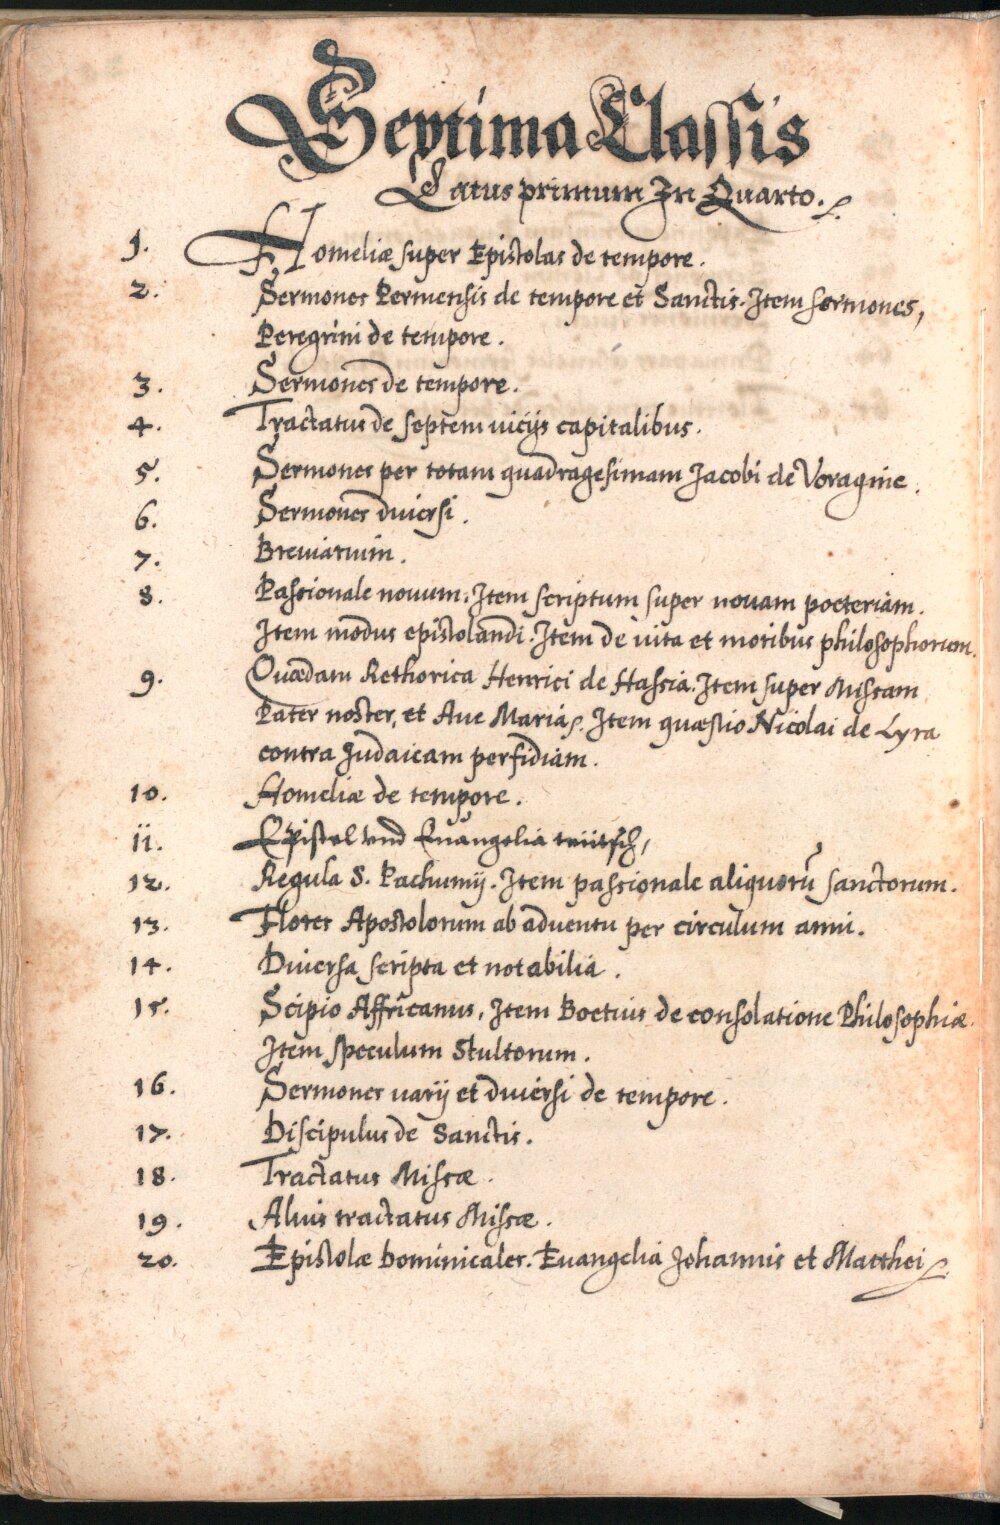 Septima Classis
Latus primum In Quarto.
1. Homeliæ super Epistolas de tempore.
2. Sermones Permensis de tempore et Sanctis. Item sermones,
Peregrini de tempore.
3. Sermones de tempore.
4. Tractatus de septem vicijs capitalibus.
5. Sermones per totam quadragesimam Jacobi de Voragine.
6. Sermones diuersi.
7. Breuiarium.
8. Passionale nouum. Item scriptum super nouam poeteriam.
Item modus epistolandi. Item de uita et moribus philosophorum.
9. Quædam Rethorica Henrici de Hassia. Item super Missam
Pater noster, et Aue Maria. Item quæstio Nicolai de Lyra
contra Judaicam perfidiam.
10. Homeliæ de tempore.
11. Epistel vnd Euangelia teütsch,
12. Regula S. Pachumij. Item passionale aliquorū sanctorum.
13. Flores Apostolorum ab aduentu per circulum anni.
14. Diuersa scripta et notabilia.
15. Scipio Affricanus, Item Boetius de consolatione Philosophiæ.
Item speculum Stultorum.
16. Sermones uarij et diuersi de tempore.
17. Discipulus de Sanctis.
18. Tractatus Missæ.
19. Alius tractatus Missæ.
20. Epistolæ Dominicales. Euangelia Johannis et Matthei